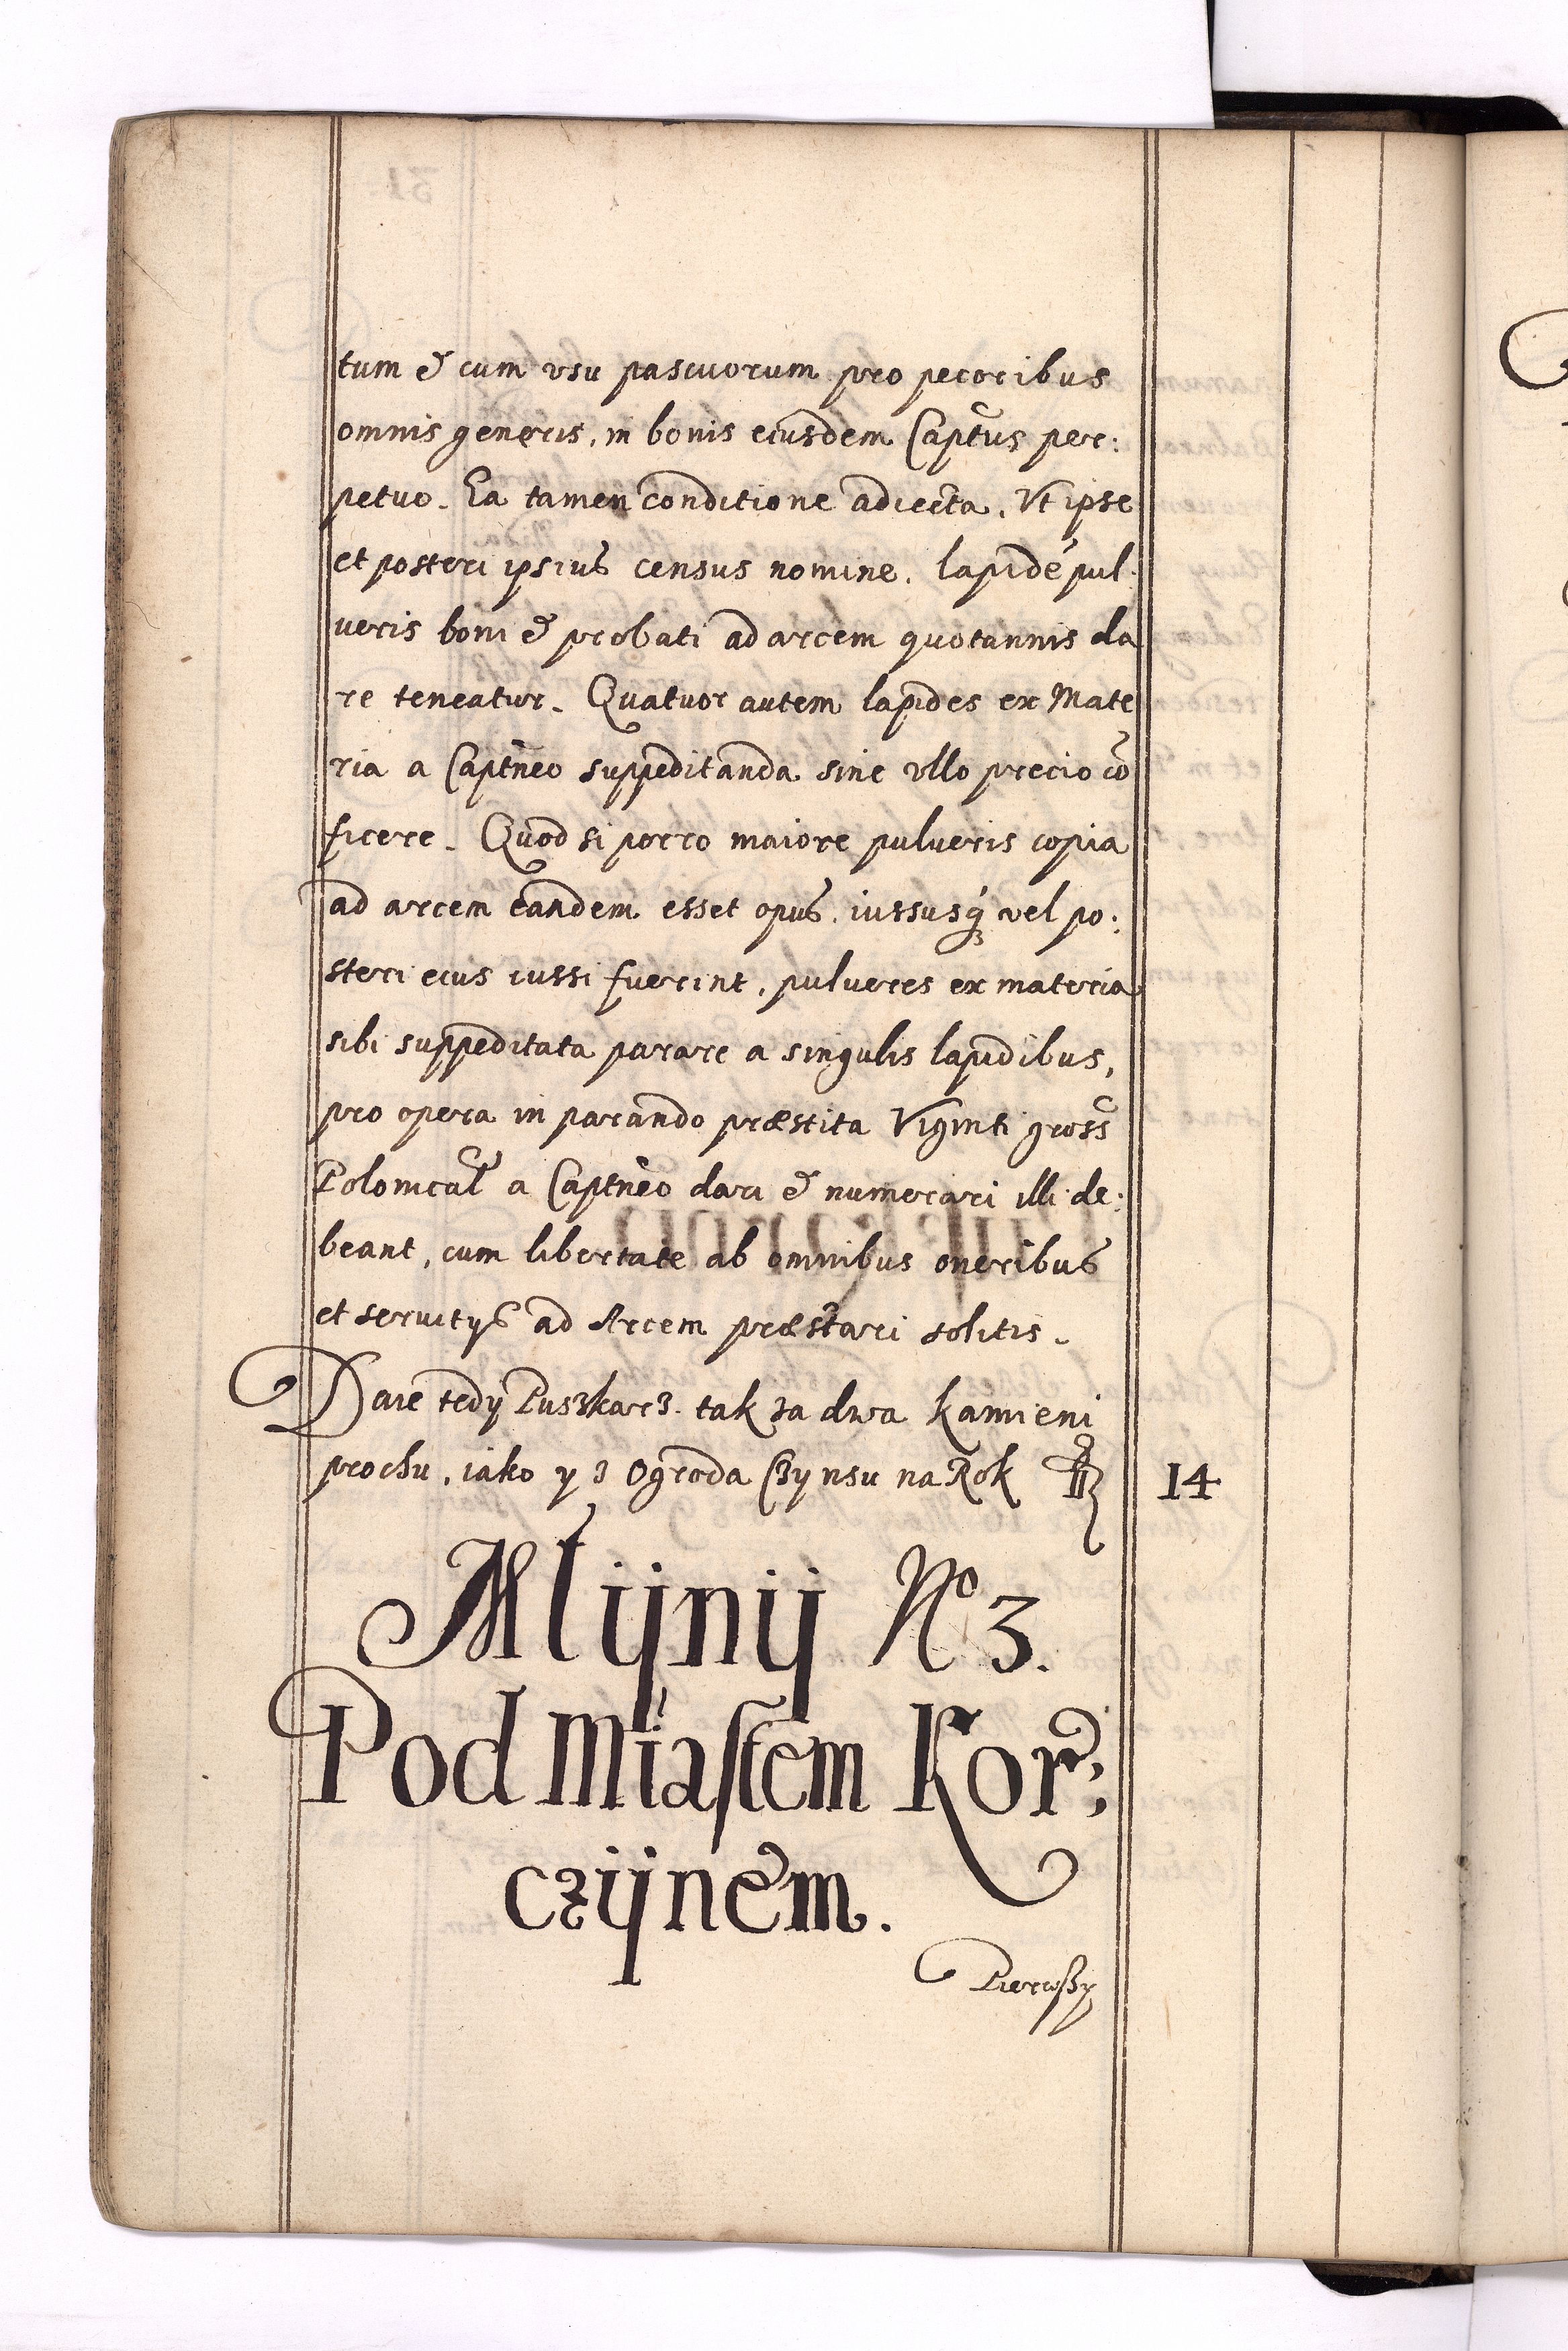 tum & cum vsu pascuorum pro pecoribus
omnis generis, in bonis eiusdem Captus per:
petuo. Ea tamen conditione adiecta. Vt ipse
et posteri ipsius census nomine. lapidé pul:
ueris boni & probati ad arcem quotannis da
re teneatur. Quatuor autem lapides ex Mate
ria a Captneo suppeditanda sine vllo precio cō
ficere. Quod si porro maiore pulueris copia
ad arcem eandem esset opus, iussusq́ vel po:
steri eius iussi fuerint, pulueres ex materia
sibi suppeditata parare a singulis lapidibus,
pro opera in parando præstita Viginti gross
Polonical a Captneo dari & numerari illi de:
beant, cum libertate ab omnibus oneribus
et seruitys ad Arcem præstari solitis.
Daie tedy Puszkarz tak za dwa kamieni
prochu, iako y z Ogroda Czynsu na Rok fl 14
Młÿnÿ No 3.
Pod Miastem Kor:
czÿnem.
Pierwszy